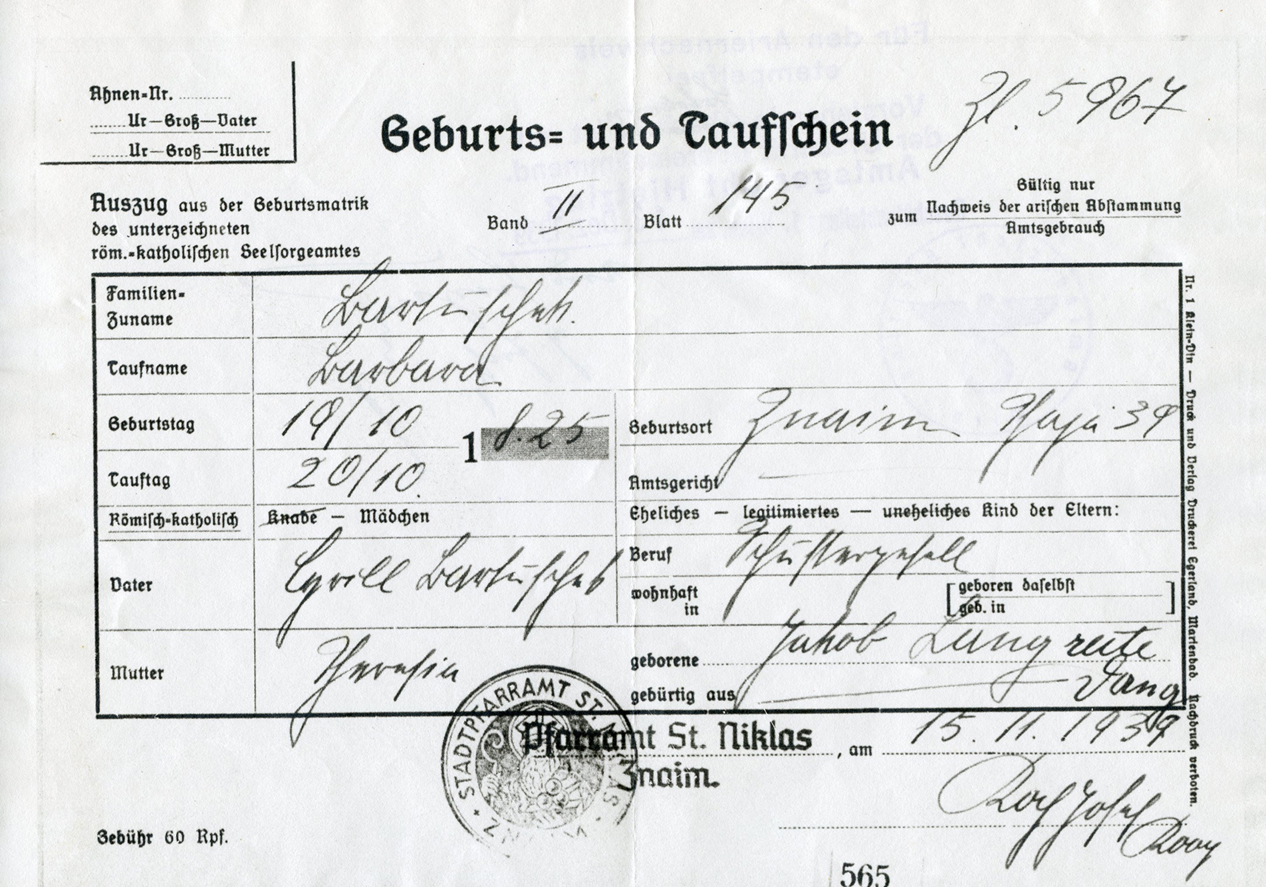 Ahnen=Nr.
Ur—Groß—Vater
Ur—Groß—Mutter
Geburts= und Taufschein
Zl. 5967
Auszug aus der Geburtsmatrik
des unterzeichneten
röm.=katholischen Seelsorgeamtes
Band II Blatt 145
Gültig nur
zum Nachweis der arischen Abstammung
Amtsgebrauch
Familien=
Zuname Bartuschek.
Taufname Barbara
Geburtstag 19/10
1 8.25
Geburtsort Znaim 39
Tauftag 20/10.
Amtsgericht
Römisch=katholisch Knabe — Mädchen
Eheliches — legitimiertes — uneheliches Kind der Eltern:
Vater Cyrill Bartuschek
Beruf Schustergesell
wohnhaft
in
geboren daselbst
geb. in
Mutter Theresia
geborene Jakob Lang
gebürtig aus
Lang
Nr. 1 Klein=Din — Druck und Verlag Druckerei Egerland, Marienbad. Nachdruck verboten.
STADTPFARRAMT ST.
Pfarramt St. Niklas
Znaim.
, am 15.11.1939
Josef
Gebühr 60 Rpf.
565
Für den Ariernachweis
stempelfrei